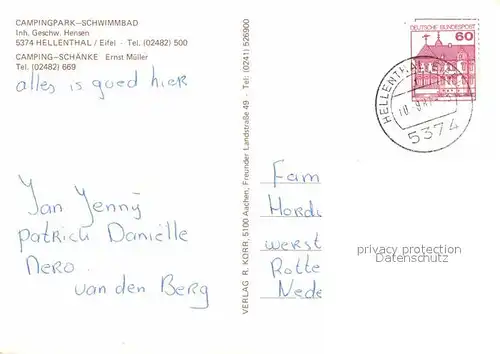 CAMPINGPARK–SCHWIMMBAD
Inh. Geschw. Hensen
5374 HELLENTHAL / Eifel - Tel. (02482) 500
CAMPING–SCHÄNKE Ernst Müller
Tel. (02482) 669
alles is goed hier
Jan Jenny
Patrick Daniëlle
Nero.
van den Berg
VERLAG R. KORR, 5100 Aachen, Freunder Landstraße 49 · Tel: (0241) 526900
DEUTSCHE BUNDESPOST
60
HELLENTHAL
5374
Fam
Hordi
werst
Rotte
Nede
privacy protection
Datenschutz